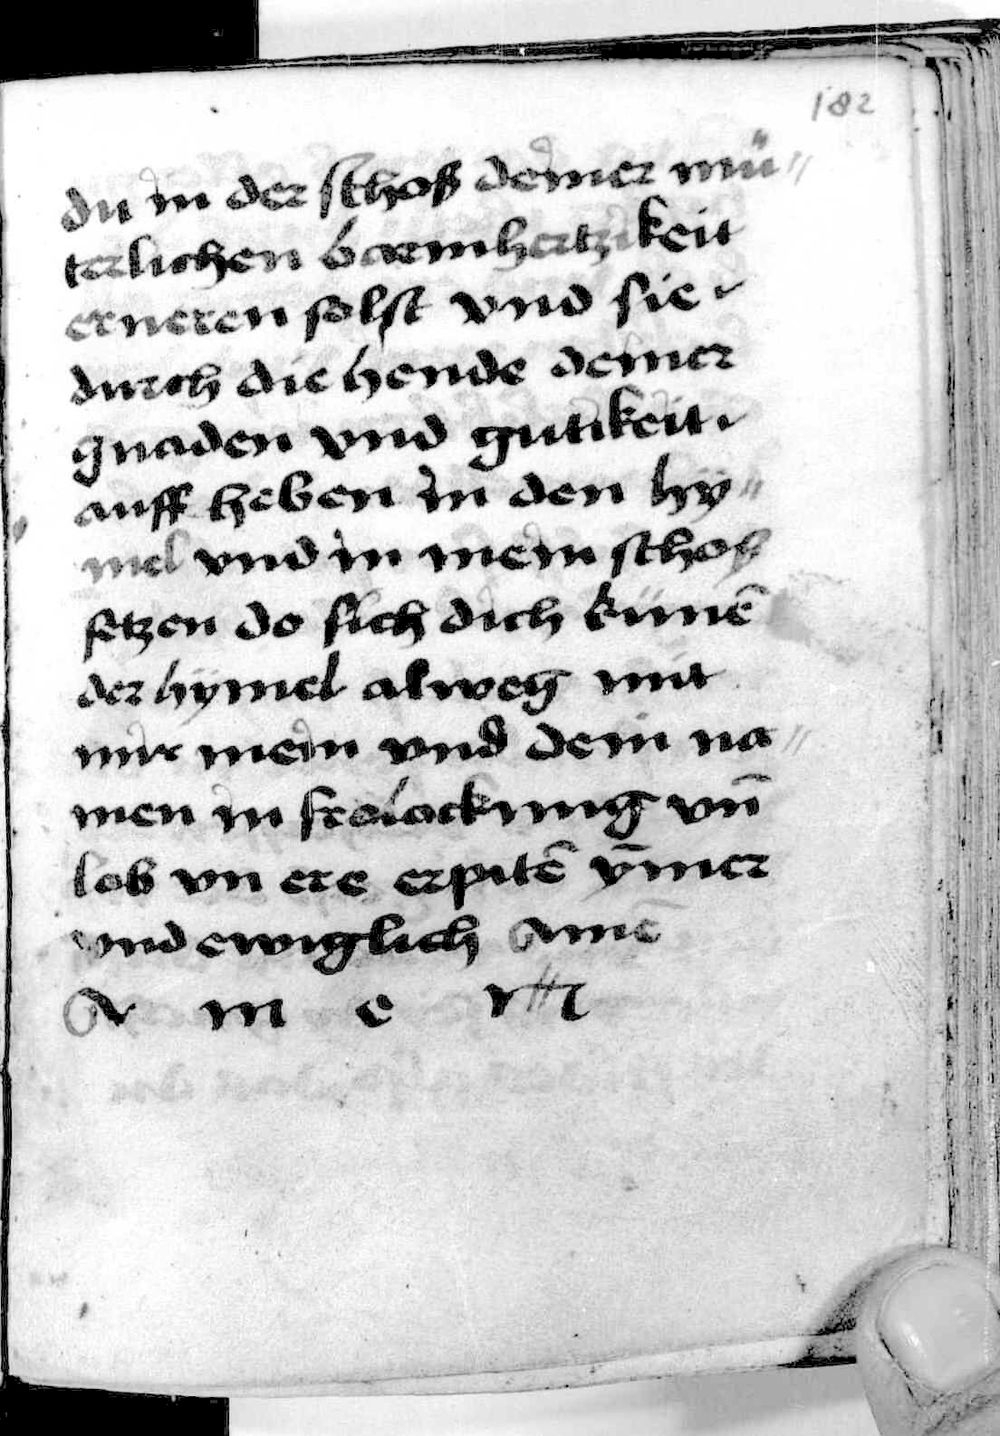 182
du in der schoß deiner mü//
terlichen barmhertzikeit
erneren solst vnd sie
durch die hende deiner
gnaden vnd gutikeit
auff heben in den hÿ//
mel vnd in mein schoß
setzen do sich dich künē
der hÿmel alweg mit
mir mein vnd dein na//
men in frolockung vn̄
lob vn ere erpitē ȳmer
vnd ewiglich Amē
A m e n